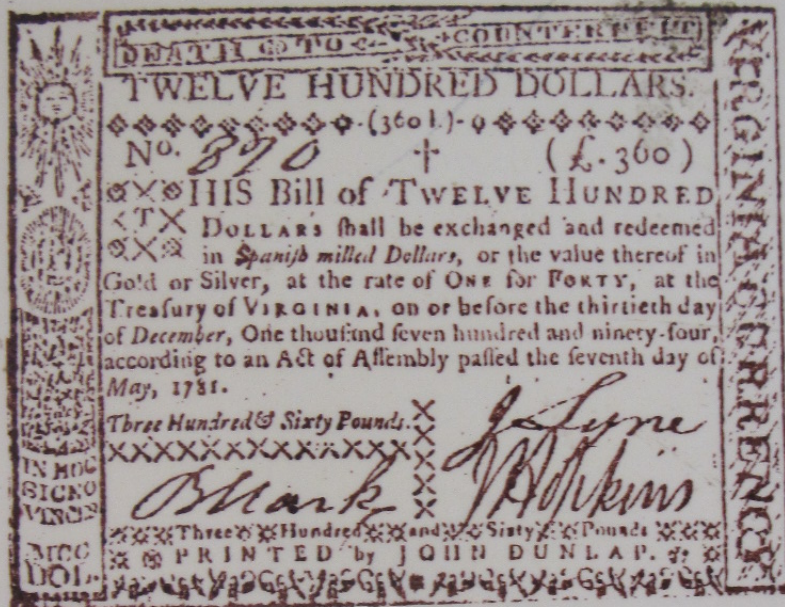 DEATH TO COUNTERFEIT
TWELVE HUNDRED DOLLARS.
(360 l.)
No. 890 (£. 360)
THIS Bill of TWELVE HUNDRED
DOLLARS ſhall be exchanged and redeemed
in Spaniſh milled Dollars, or the value thereof in
Gold or Silver, at the rate of ONE for FORTY, at the
Treaſury of VIRGINIA, on or before the thirtieth day
of December, One thouſand ſeven hundred and ninety-four,
according to an Act of Aſſembly paſſed the ſeventh day of
May, 1781.
Three Hundred & Sixty Pounds.
J Lyne
JHopkins
Three Hundred and Sixty Pounds
PRINTED by JOHN DUNLAP.
IN HOC
SIGNO
VINCES
MCC
DOL.
VIRGINIA CURRENCY